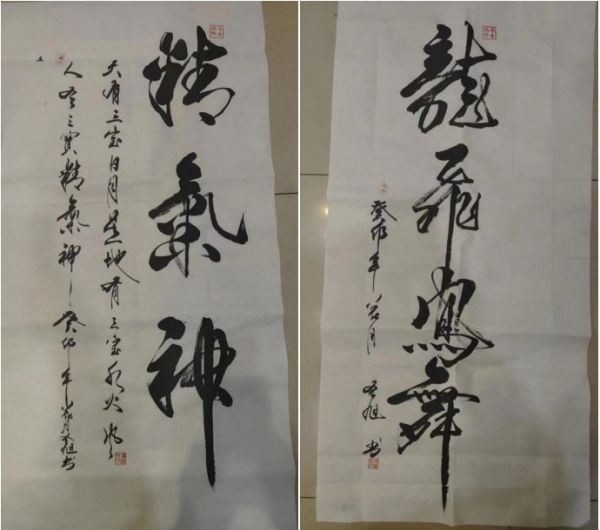 精氣神
天有三宝日月星地有三宝水火风
人有三寶精氣神癸卯年月旭书
龍飛鳳舞
癸卯年月旭书